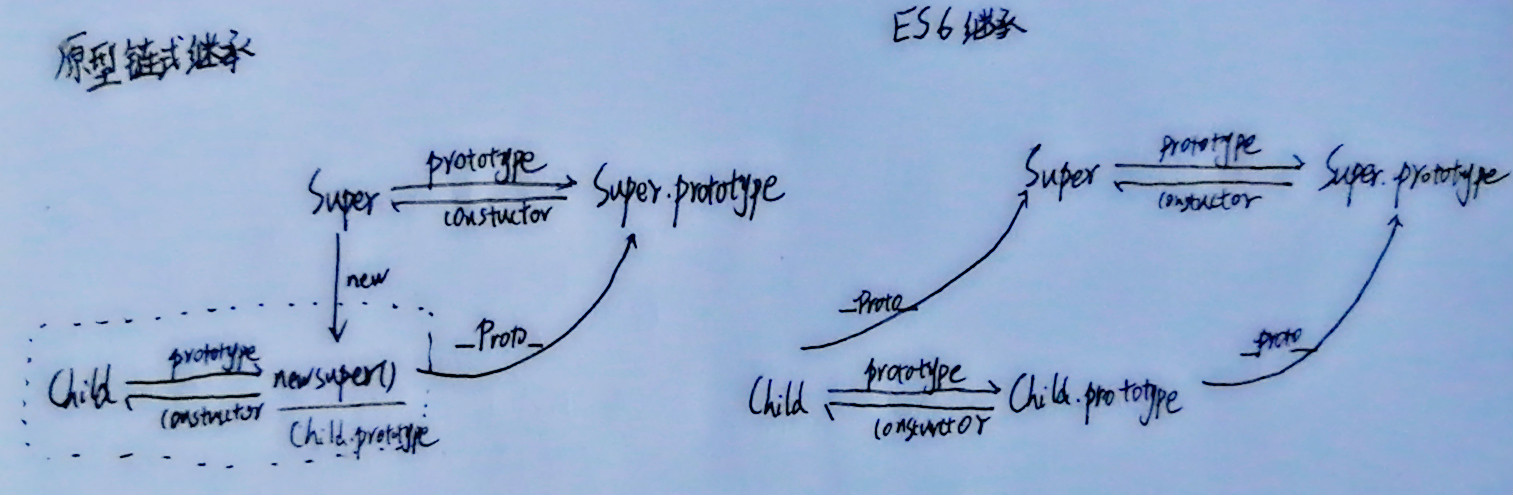 原型链式继承
Super
prototype
constuctor
Super.prototype
new
_Proto_
Child
prototype
constructor
new super()
Child.prototype
ES6 继承
Super
prototype
constuctor
Super.prototype
_Proto_
_proto_
Child
prototype
constructor
Child.prototype